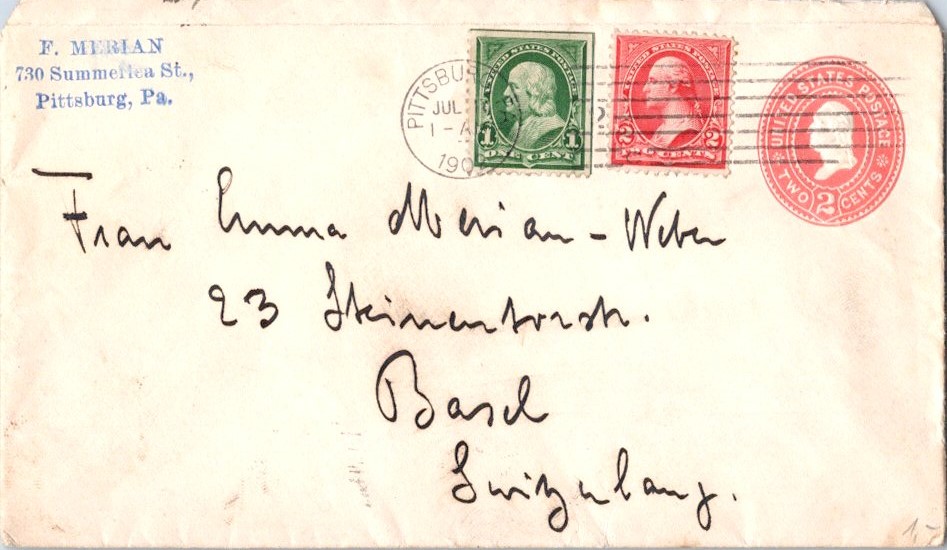 F. MERIAN
730 Summerlea St.,
Pittsburg, Pa.
PITTSBU
JUL
1 - A
190
UNITED STATES POSTAGE
1 1
ONE CENT
UNITED STATES POSTAGE
2 2
TWO CENTS
UNITED STATES POSTAGE
TWO 2 CENTS
Frau Emma Merian-Weber
23 Steinentorstr.
Basel
Switzerland.
1,-